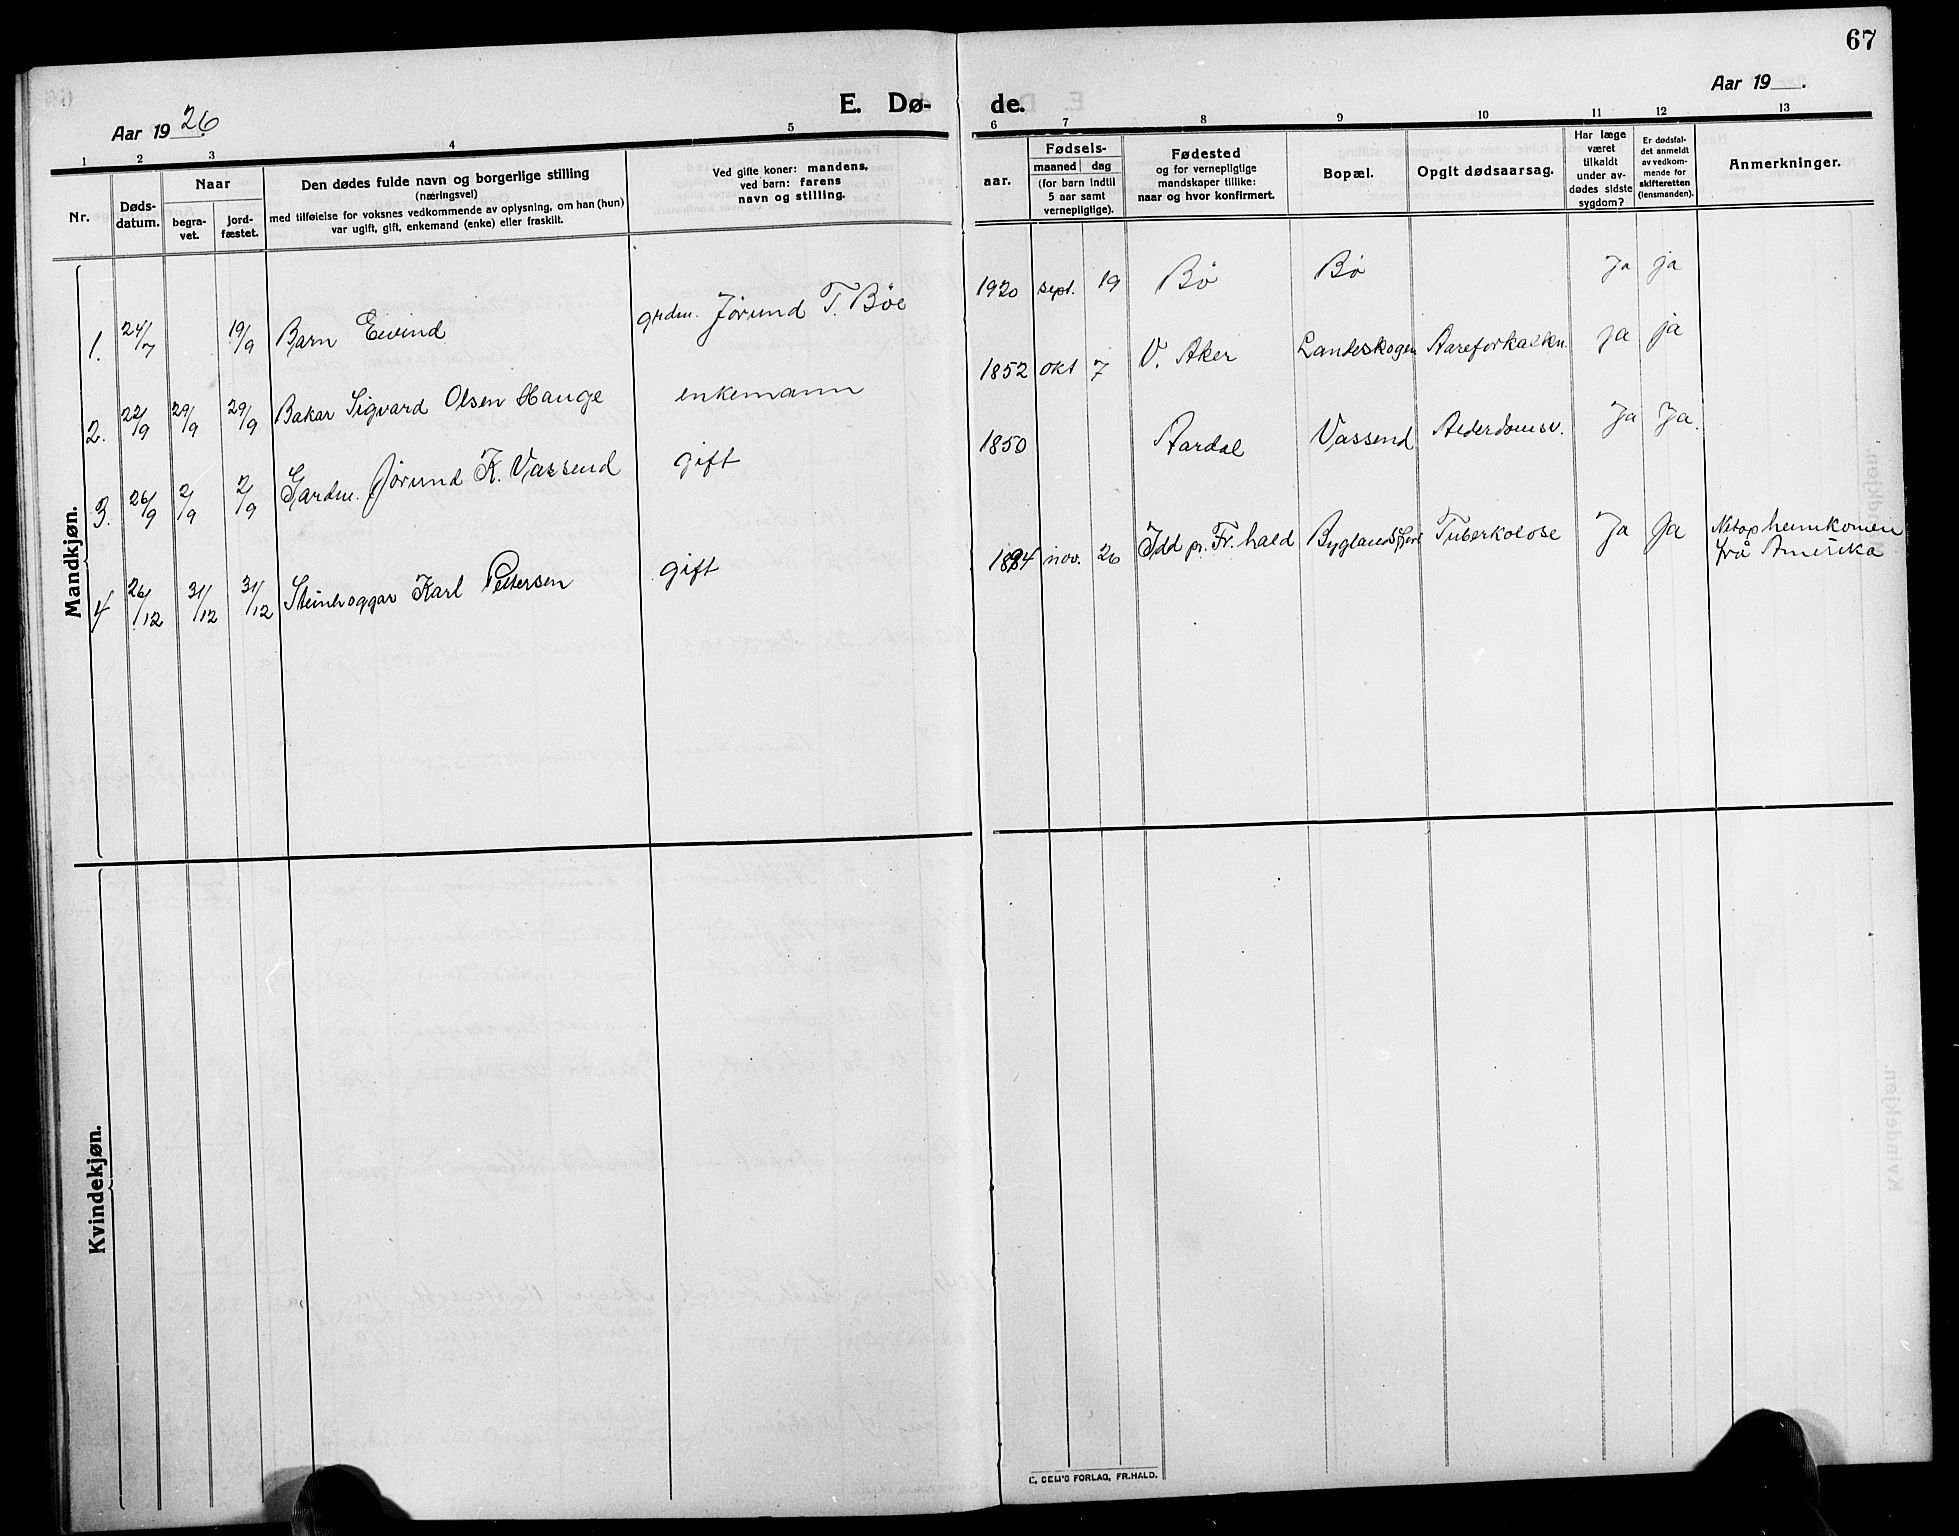 67
Aar 1926
E. Dø-
de.
Aar 19 .
1 2 3 4 5
6 7 8 9 10 11 12 13
Nr.
Døds-
datum.
Naar
begra-
vet.
jord-
fæstet.
Den dødes fulde navn og borgerlige stilling
(næringsvei)
med tilføielse for voksnes vedkommende av oplysning, om han (hun)
var ugift, gift, enkemand (enke) eller fraskilt.
Ved gifte koner: mandens,
ved barn: farens
navn og stilling.
aar.
Fødsels-
maaned dag
(for barn indtil
5 aar samt
vernepligtige).
Fødested
og for vernepligtige
mandskaper tillike:
naar og hvor konfirmert.
Bopæl.
Opgit dødsaarsag.
Har læge
været
tilkaldt
under av-
dødes sidste
sygdom?
Er dødsfal-
det anmeldt
av vedkom-
mende for
skifteretten
(lensmanden).
Anmerkninger.
Mandkjøn.
1. 24/7 19/9 Barn Eivind grdm. Jørund T. Bøe 1920 sept. 19 Bø Bø Ja ja
2. 22/9 29/9 29/9 Bakar Sigvard Olsen Hauge enkemann 1852 okt 7 V. Aker Landeskogen Aareforkalkn. ja ja
3. 26/9 2/9 2/9 Gardm. Jørund K. Vassend gift 1850 Aardal Vassend Alderdomsv. Ja Ja.
4 26/12 31/12 31/12 Steinhoggar Karl Pettersen gift nov. 26 Idd pr. Fr.hald Byglandsfjord Tuberkolose Ja Ja Netop heimkomen
frå Amerika
Kvindekjøn.
E. SEM'S FORLAG, FR.HALD.